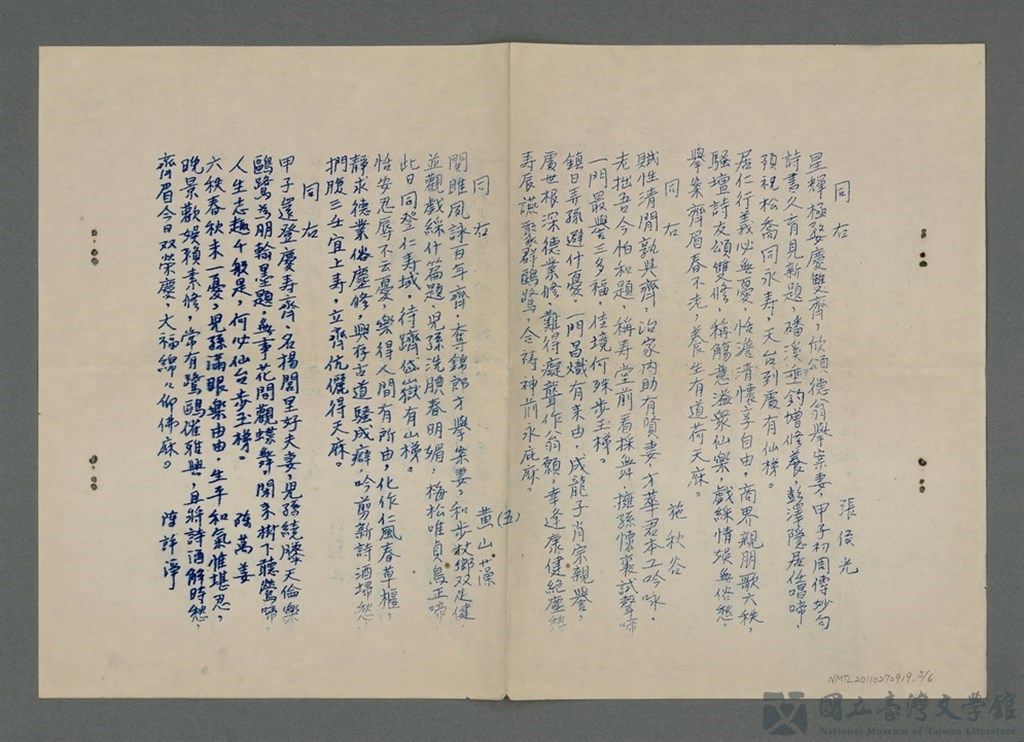 同右　張侯光
星輝極婺慶雙齊，欣頌德翁舉案妻，甲子初周傳妙句
詩書久有見新題，磻溪垂釣增修養，彭澤隱居任鳴啼，
預祝松喬同永壽，天台到處有仙梯。
居仁行義必無憂，恬澹清懷享自由，商界親朋歌六秩，
騷壇詩友頌雙修，稱觴意溢眾仙樂，戲綵情娛無俗愁，
舉案齊眉春不老，養生有道荷天庥。
同右　施秋谷
賦性清閒孰與齊，治家內助有賢妻，才華君本工吟咏，
老拙吾今怕和題，稱壽堂前看採舞，擁孫懷裏試聲啼
一門最譽三多福，佳境何殊步玉梯。
鎮日弄孫避什憂，一門昌熾有來由，成龍子肖宗親譽，
處世根深德業修，難得癡聾作翁願，幸逢康健絕塵愁
壽辰讌聚群鷗鷺，合祷神前永庇庥。
(五)
同右　黄山藻
関雎風詠百年齊，奪錦郎才舉案妻，和步杖鄉双足健，
並觀戲綵什篇題，児孫洗腆春明媚，梅松唯貞鳥正啼，
此日同登仁寿域，待躋岱嶽有山梯。
恬安忍辱不云憂，樂得人間有所由，化作仁風春草樞，
靜求德業俗塵修，興存古道騷成癖，吟剪新詩酒埽愁，
捫腹三壬宜上寿，立齊伉儷得天庥。
同右　陰萬姜
甲子還登慶寿齊，名揚閭里好夫妻，児孫繞膝天倫樂
鷗鷺為朋翰墨題，無事花間觀蝶舞，閑来樹下聽鶯啼，
人生志趣千般是，何必仙台步玉梯。
六秩春秋未一憂，児孫滿眼樂由由，生平和氣惟堪忍，
晚景歡娱賴素修，常有鷺鷗催雅興，且將詩酒解時愁，
齊眉今日双荣慶，大福綿々仰佛庥。　陳評淨
NMTL20110270919_3/6
國立臺灣文學館
National Museum of Taiwan Literature